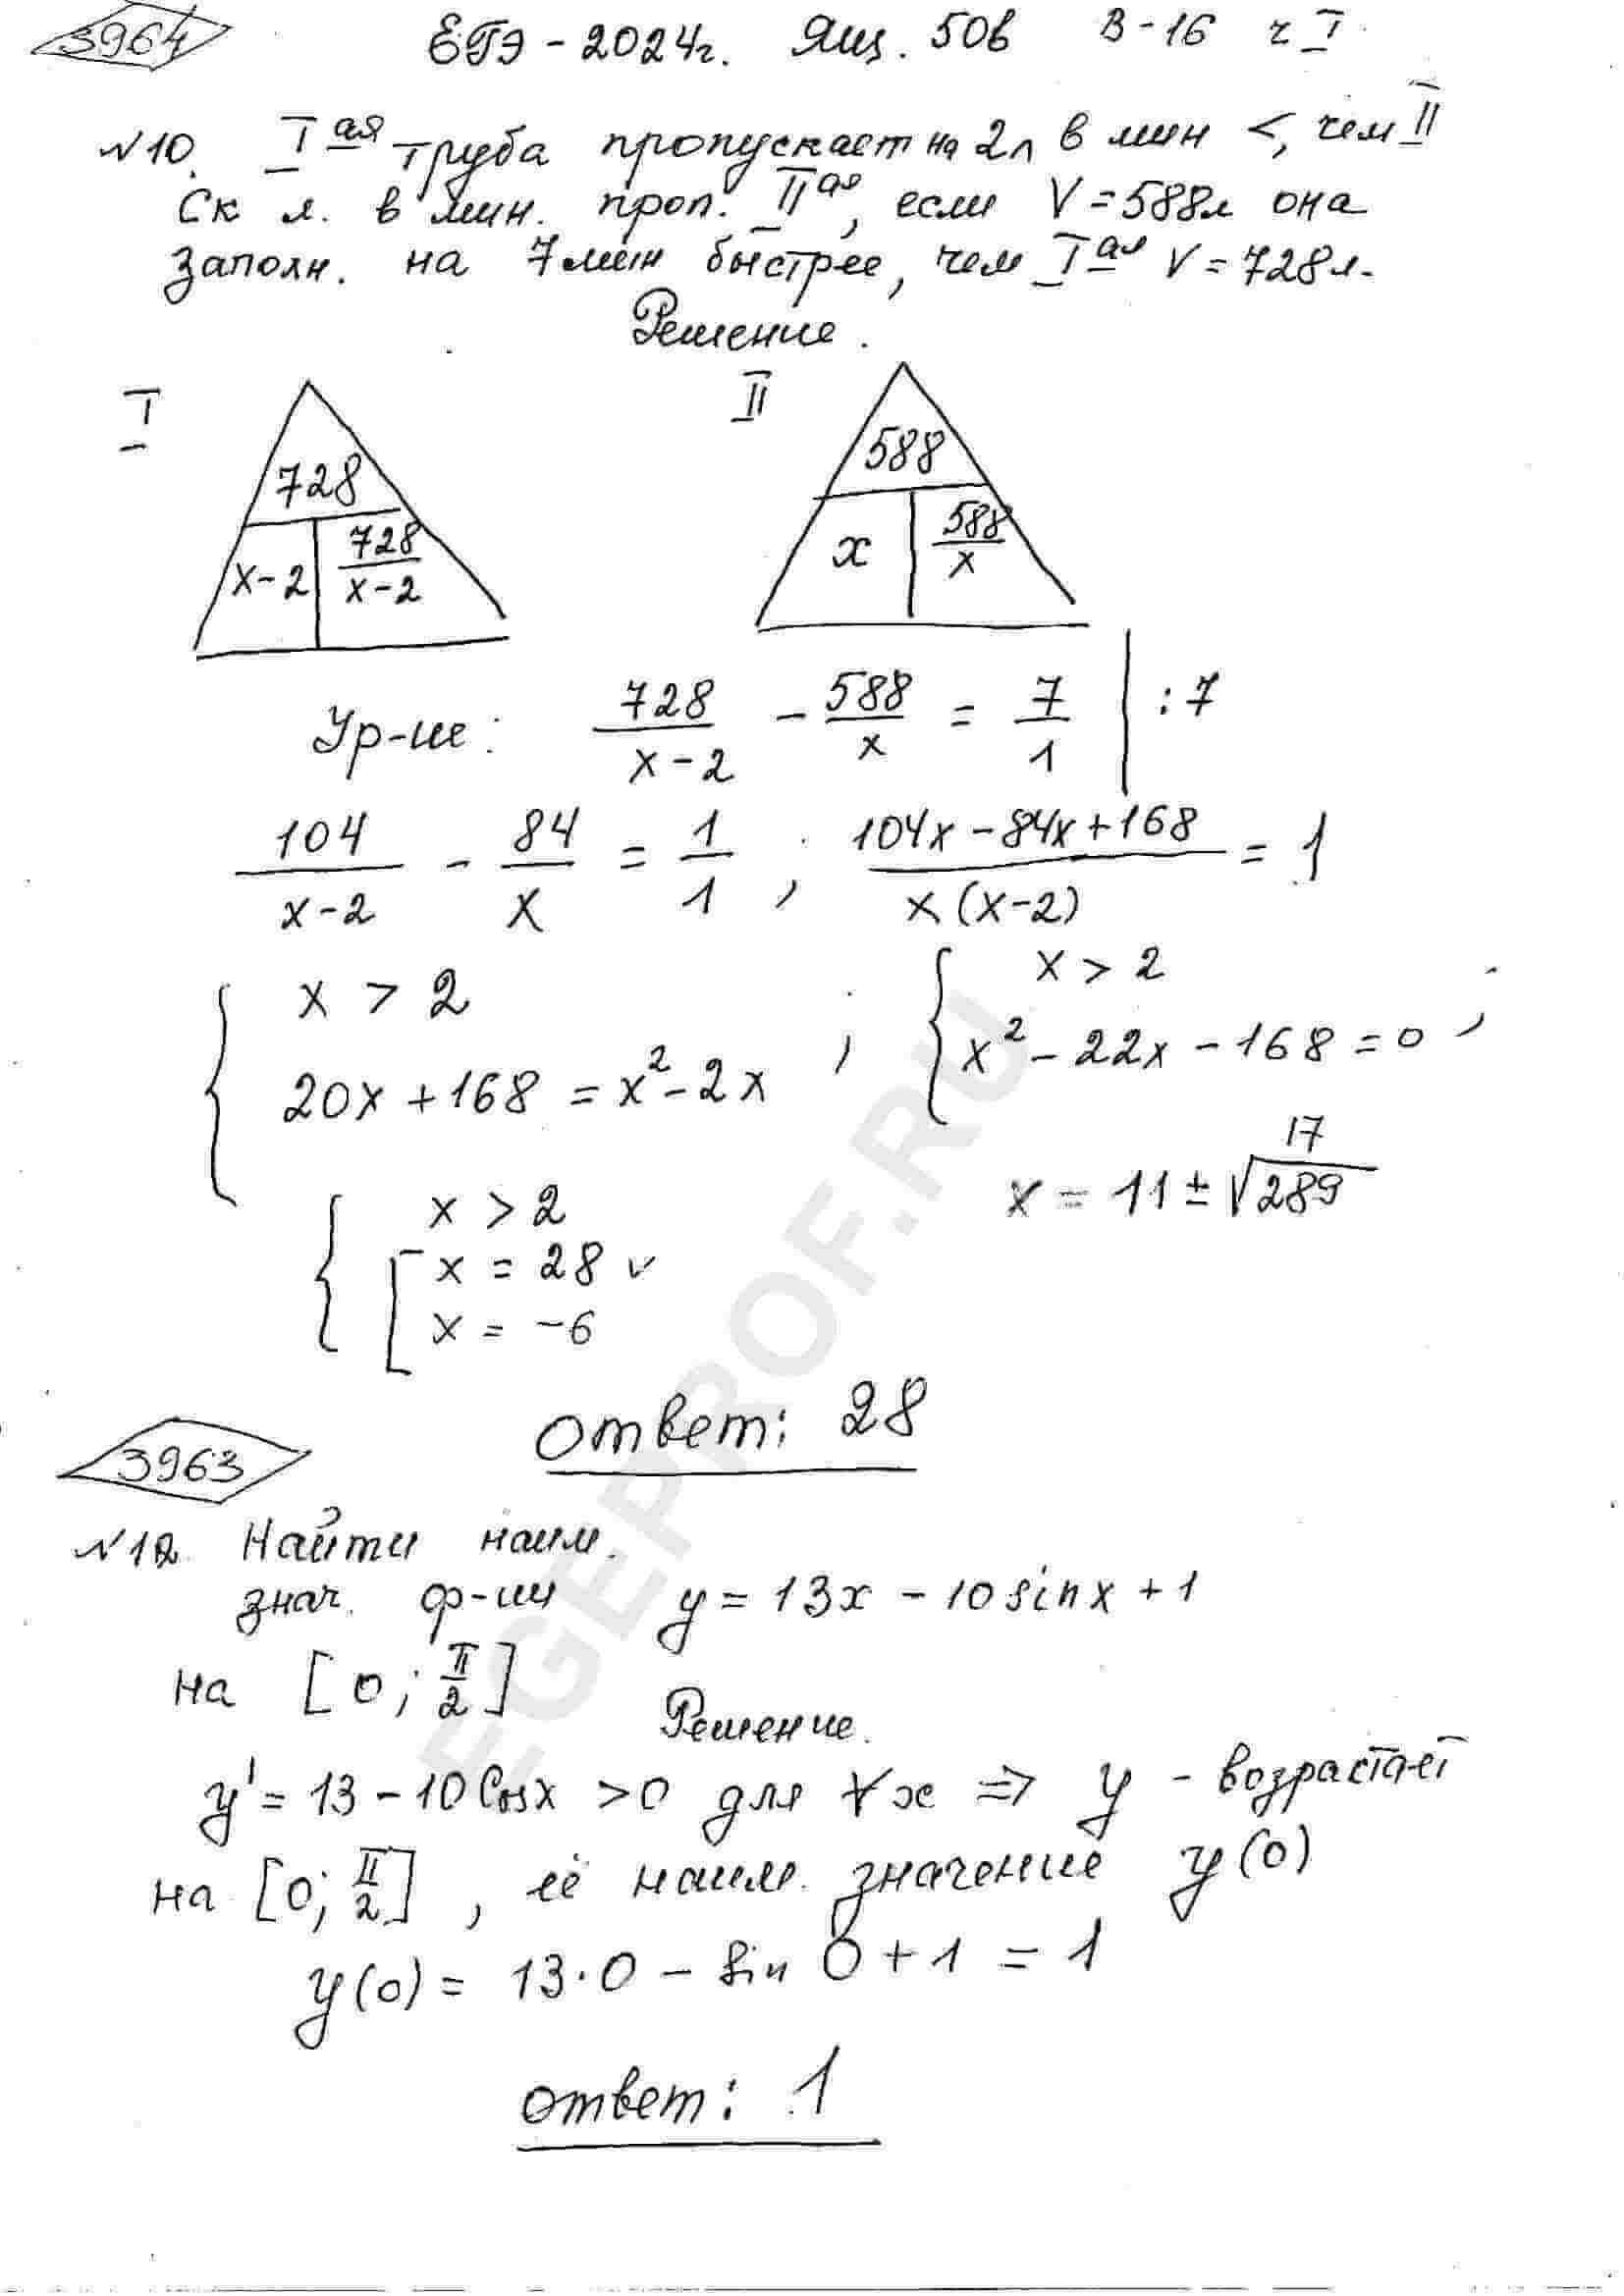 3964
ЕГЭ - 2024г. Ящ. 50в В-16 ч I
№10. I ая труба пропускает на 2л в мин <, чем II
Ск л. в мин. проп. II ая, если V = 588л она
заполн. на 7 мин быстрее, чем I ая V = 728л.
Решение.
I
II
728
x-2
728/(x-2)
588
x
588/x
Ур-ие: 728/(x-2) - 588/x = 7/1 | :7
104/(x-2) - 84/x = 1/1 ; (104x - 84x + 168)/(x(x-2)) = 1
{ x > 2
20x + 168 = x² - 2x ;
{ x > 2
x² - 22x - 168 = 0 ;
17
x = 11 ± √289
{ x > 2
[ x = 28 v
x = -6
ответ: 28
3963
№12. Найти наим.
знач. ф-ии y = 13x - 10 sin x + 1
на [0; π/2]
Решение.
y' = 13 - 10 Cos x > 0 для ∀x => y - возрастает
на [0; π/2], её наим. значение y(0)
y(0) = 13·0 - sin 0 + 1 = 1
ответ: 1
EGEPROF.RU